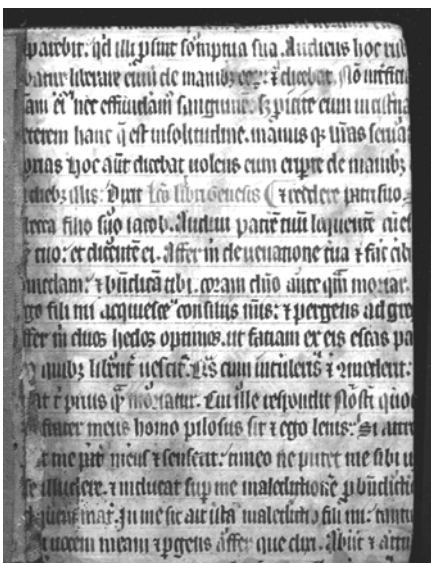 parebit. qd illi psint sompnia sua. Audiens hoc rub
batur liberare eum de manibz eoz: ⁊ dicebat. Nō interficia
am ei nec effundam sanguinē. sz picite eum in cisterna
veterem hanc q̄ est in solitudine. manus qz vr̄as serua
oxias hoc aūt dicebat uolens eum eripe de manibz
Dixit lc̄o libri Genesis ⁊ reddere patri suo
filio suo iacob. Audiui patrē tuū loquentē cū
tuo: et dicentē ei. Affer m̄ de uenatione tua ⁊ fac cib
medam: ⁊ bn̄dicā tibi. coram dn̄o ante qm̄ moriar.
go fili mi acquiesce consiliis m̄is: ⁊ pergens ad greg
ffer m̄ duos hedos optimos. ut faciam ex eis escas pa
quibz libent uescit. cum intuleris ⁊ comederit.
at t̄ prius q̄ moriatur. Cui ille respondit Nosti quod
frater meus homo pilosus sit ⁊ ego lenis: Si attre
me pr̄ meus ⁊ senserit: timeo ne putet me sibi u
se illudere. ⁊ inducat sup me maledictionē p bn̄dictio
mar̄. In me sit ait ista maledictio fili mi: tantu
uocem meam ⁊ pgens affer que dixi. Abiit ⁊ attu